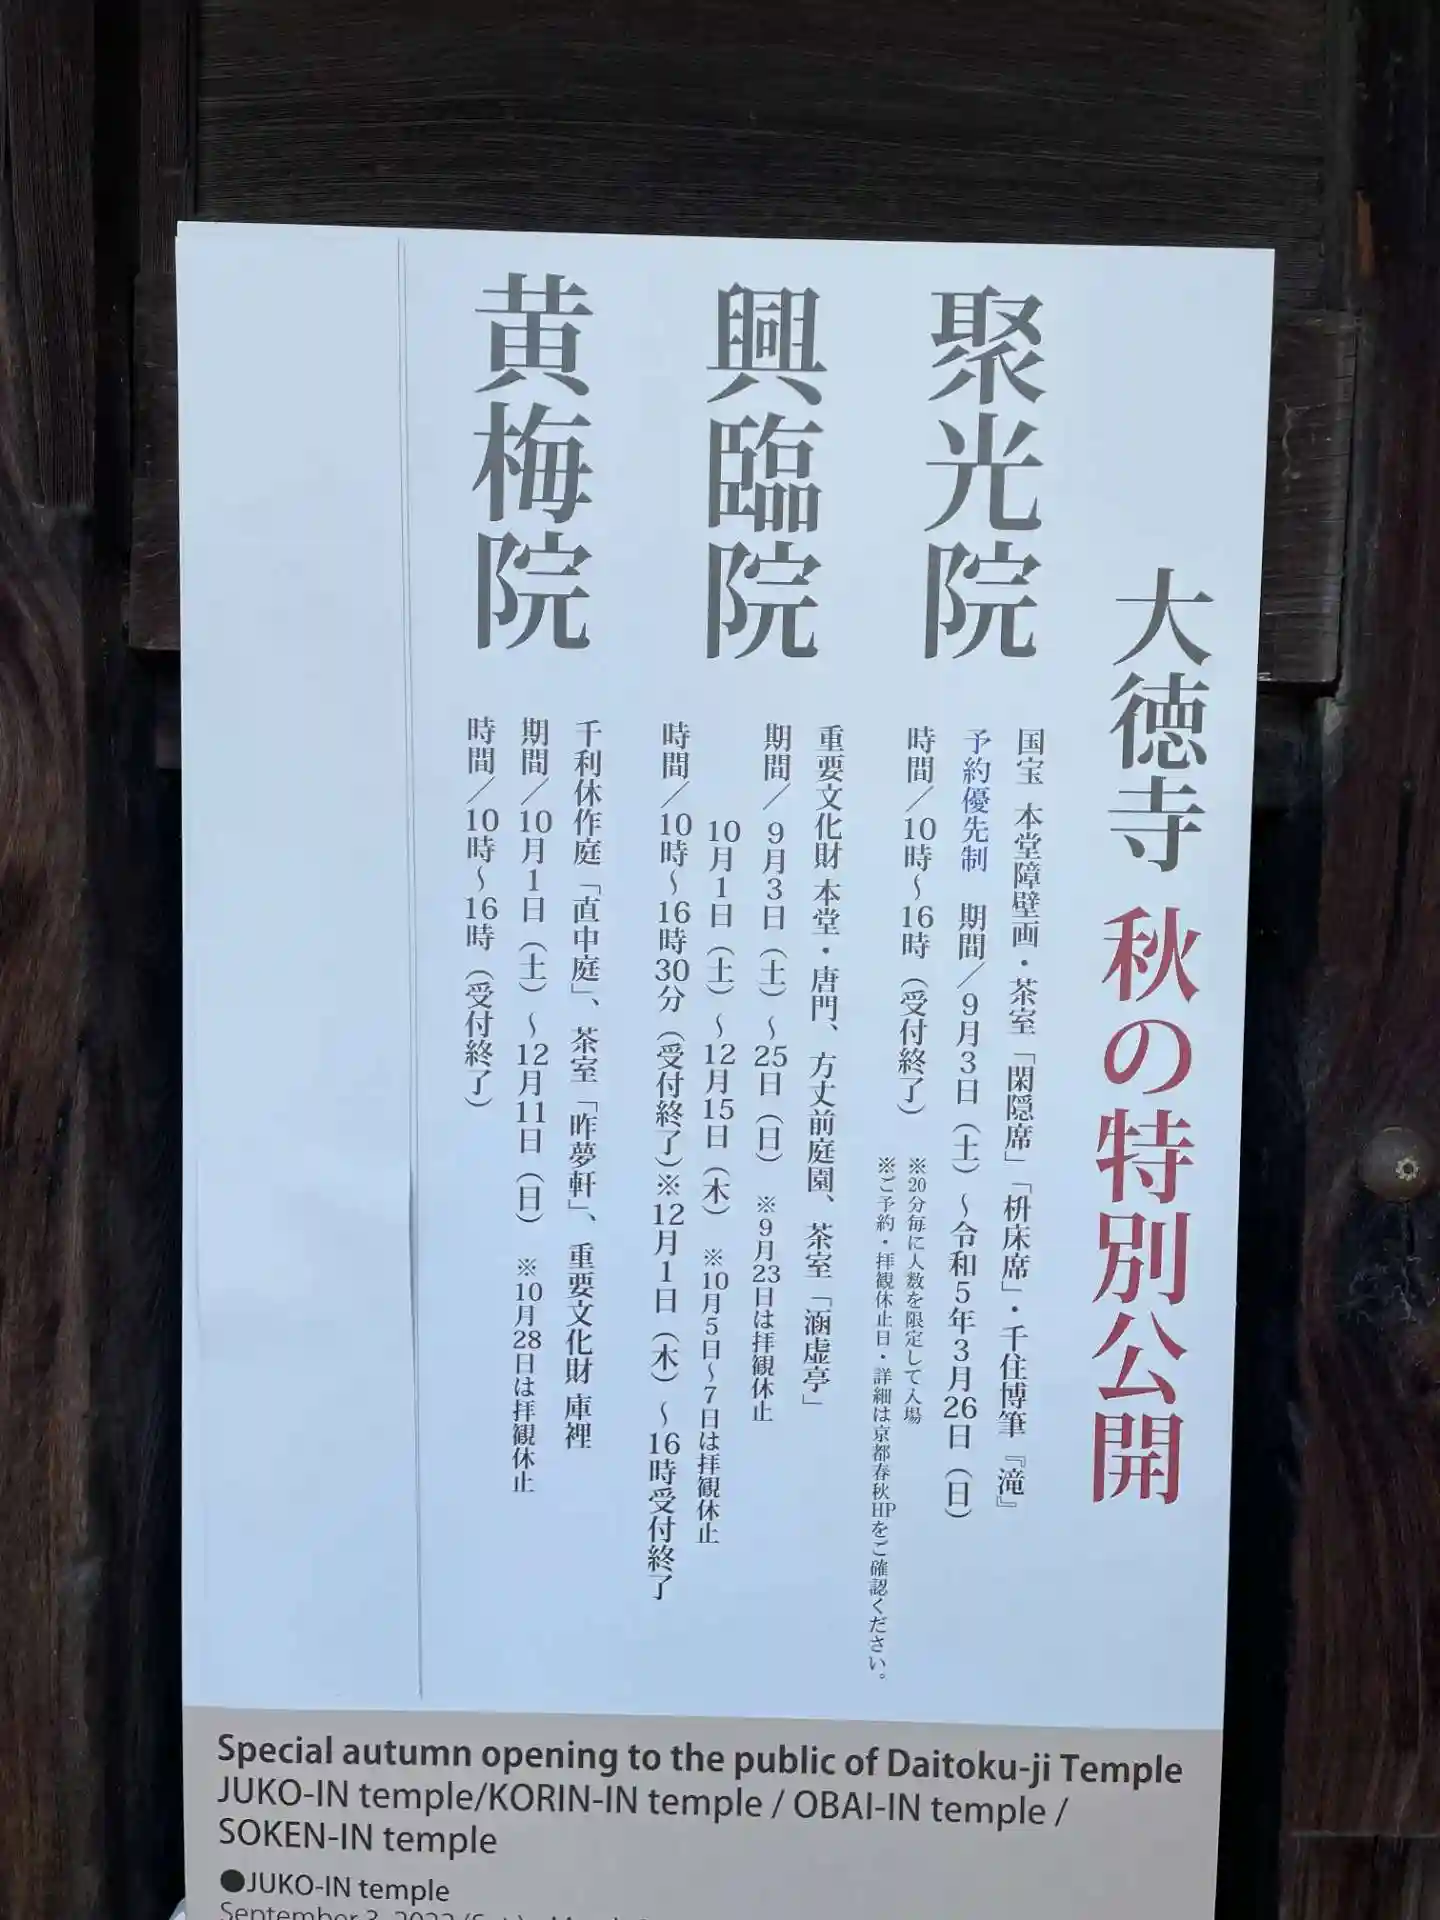 大徳寺 秋の特別公開
聚光院
国宝 本堂障壁画・茶室「閑隠席」「枡床席」・千住博筆『滝』
予約優先制 期間／9月3日（土）～令和5年3月26日（日）
時間／10時～16時（受付終了） ※20分毎に人数を限定して入場
※ご予約・拝観休止日・詳細は京都春秋HPをご確認ください。
興臨院
重要文化財 本堂・唐門、方丈前庭園、茶室「涵虚亭」
期間／9月3日（土）～25日（日） ※9月23日は拝観休止
10月1日（土）～12月15日（木） ※10月5日～7日は拝観休止
時間／10時～16時30分（受付終了）※12月1日（木）～16時受付終了
黄梅院
千利休作庭「直中庭」、茶室「昨夢軒」、重要文化財 庫裡
期間／10月1日（土）～12月11日（日） ※10月28日は拝観休止
時間／10時～16時（受付終了）
Special autumn opening to the public of Daitoku-ji Temple
JUKO-IN temple/KORIN-IN temple / OBAI-IN temple /
SOKEN-IN temple
●JUKO-IN temple
September 3, 2022 (Sat)